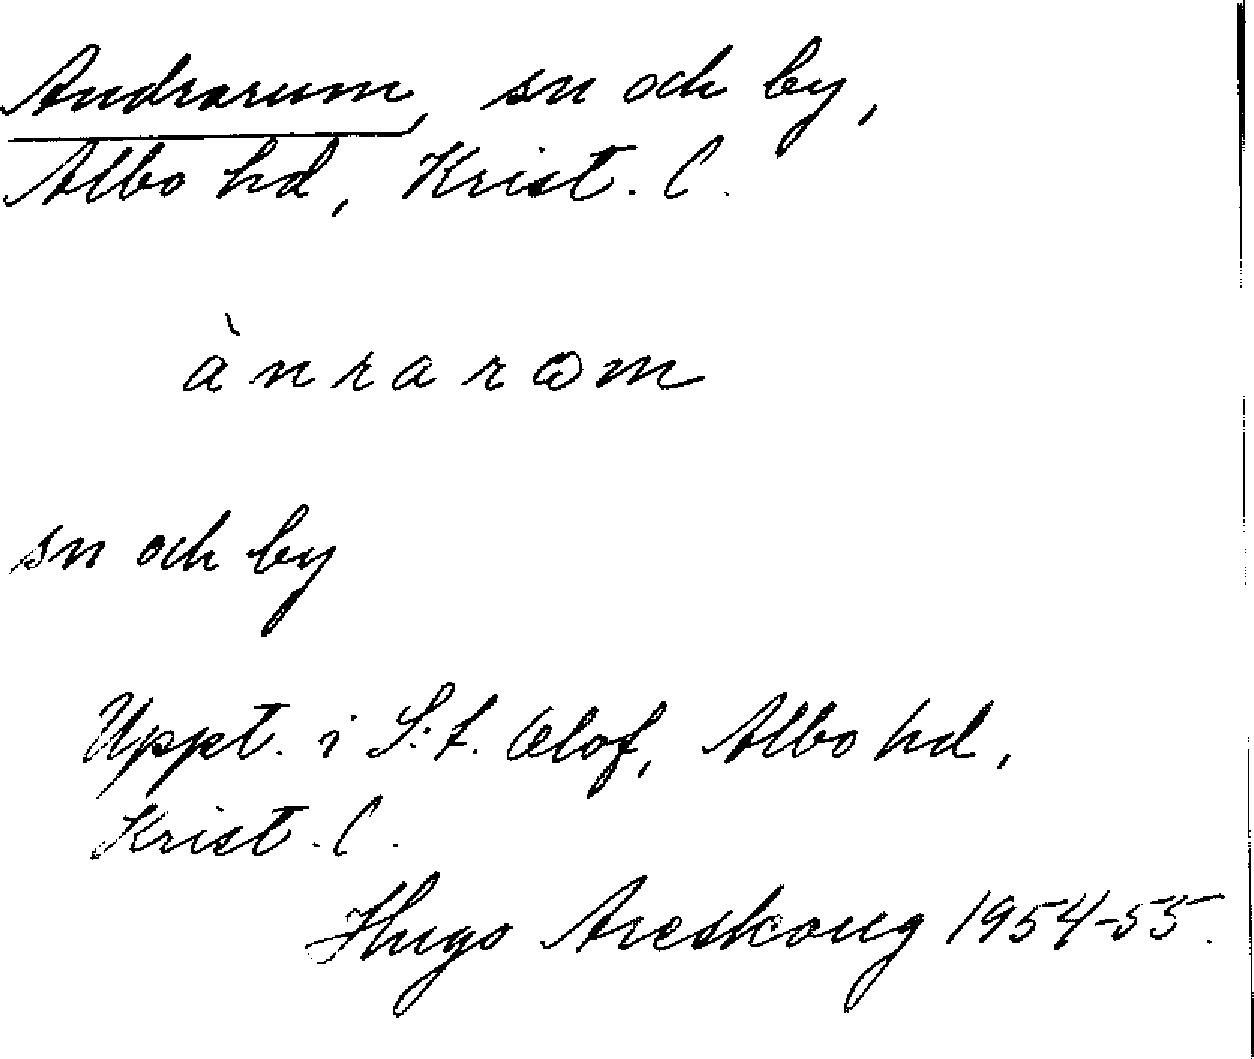 Andrarum, sn och by,
Albo hd, Krist. l.
ànrarωm
sn och by
Uppt. i S:t. Olof, Albo hd,
Krist. l.
Hugo Areskoug 1954-55.